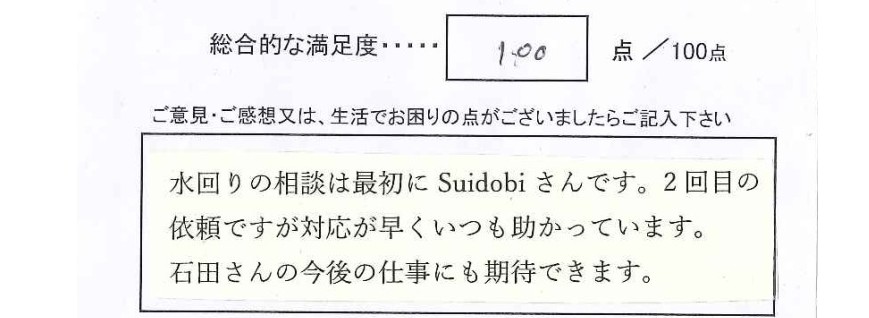 総合的な満足度・・・・・ 100 点 ／100点
ご意見・ご感想又は、生活でお困りの点がございましたらご記入下さい
水回りの相談は最初に Suidobi さんです。2回目の
依頼ですが対応が早くいつも助かっています。
石田さんの今後の仕事にも期待できます。